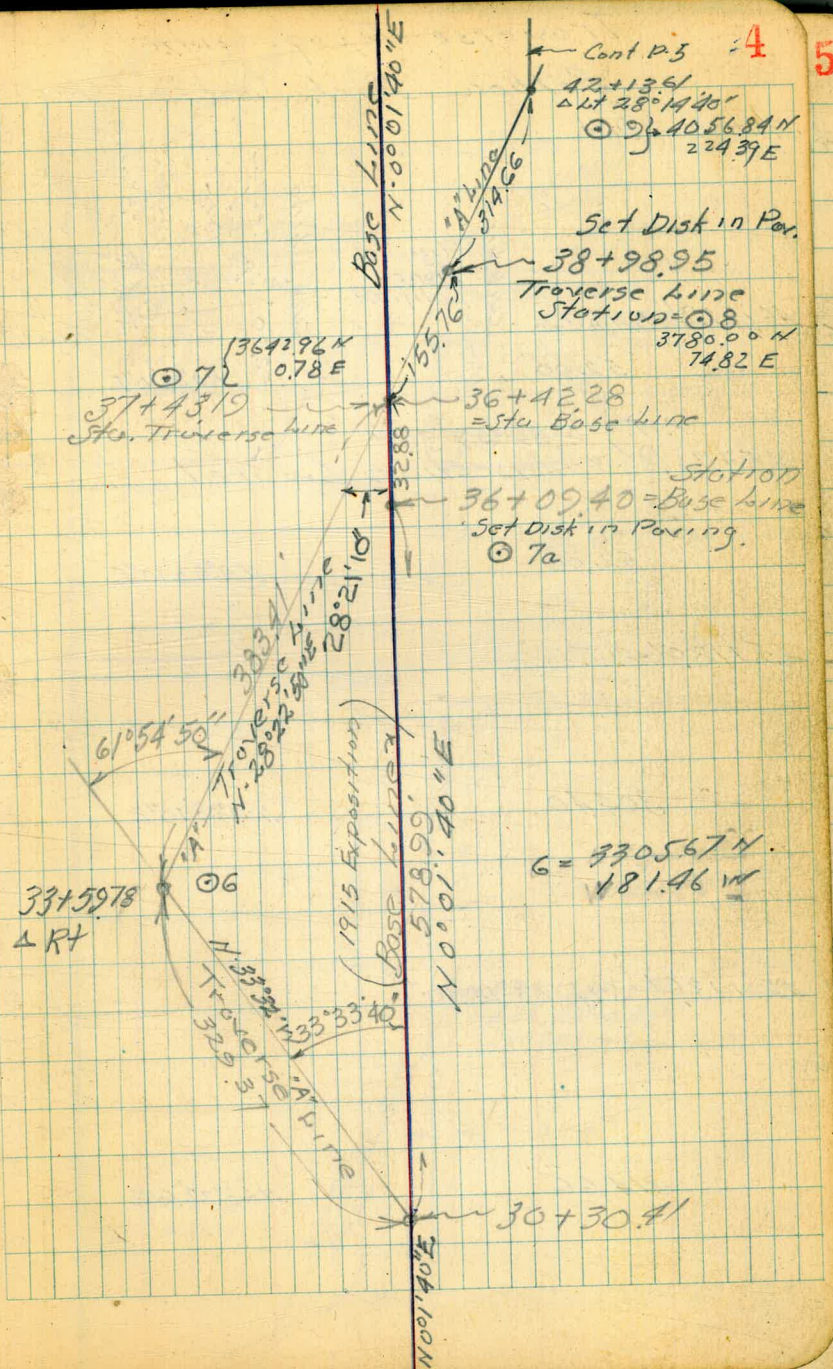 4
5
Cont P.5
42+13.61
Δ Lt 28°14'40"
⊙ 9} 4056.84 N
224.39 E
"A" Line
314.66
Base Line
N·0°01'40"E
Set Disk in Pav.
38+98.95
Traverse Line
Station = ⊙ 8
3780.00 N
74.82 E
155.76
⊙ 7{ 3642.96 N
0.78 E
37+43.19
Sta. Traverse Line
36+42.28
=Sta Base Line
32.88
Station
36+09.40 = Base Line
Set Disk in Paving.
⊙ 7a
28°21'10"
383.41
"A" Traverse Line
N·28°22'50"E
61°54'50"
(1915 Exposition)
(Base Line)
578.99'
N 0°01'40"E
6 = 3305.67 N.
181.46 W
33+59.78
Δ Rt
⊙6
N·33°32'W
33°33'40"
Traverse "A" Line
329.37
30+30.41
N0°01'40"E